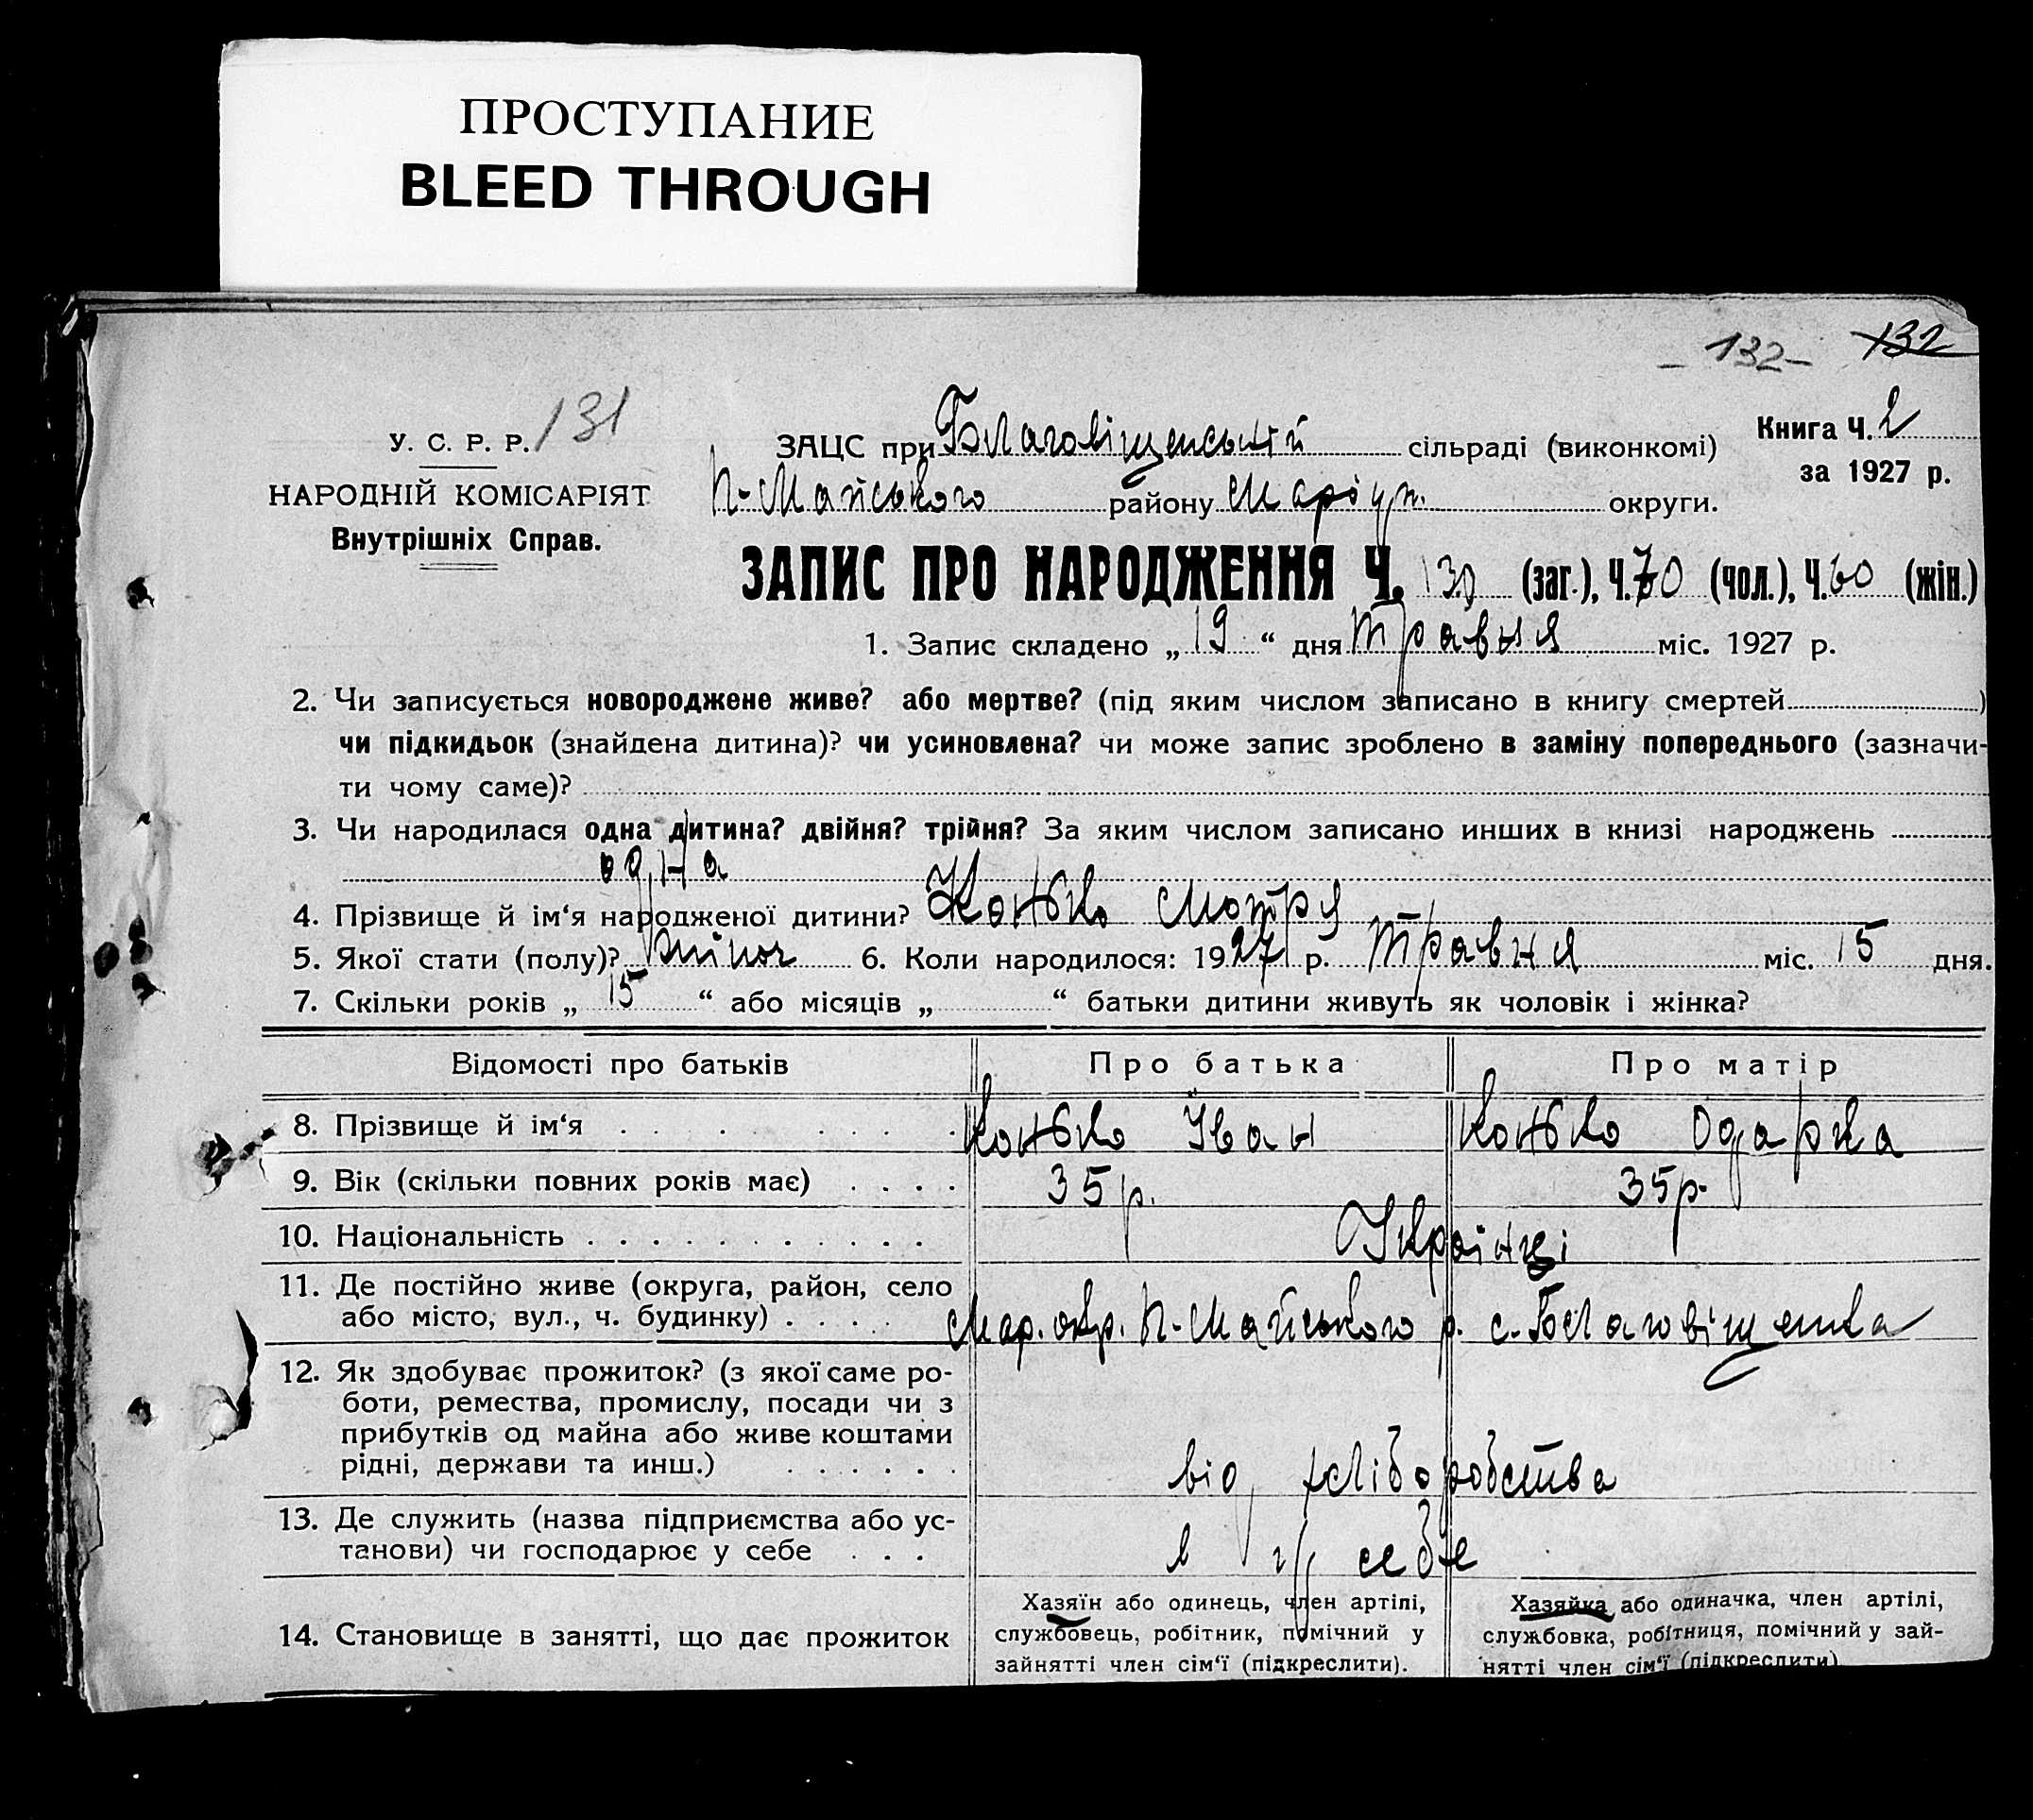 ПРОСТУПАНИЕ
BLEED THROUGH
- 132 - 132
131
У. С. Р. Р.
НАРОДНІЙ КОМІСАРІЯТ
Внутрішніх Справ.
ЗАЦС при Благовіщенській сільраді (виконкомі)
Книга Ч. 2
за 1927 р.
П-Майського району Маріуп. округи.
ЗАПИС ПРО НАРОДЖЕННЯ Ч. 130 (заг.), Ч. 70 (чол.), Ч. 60 (жін.)
1. Запис складено „ 19 “ дня Травня міс. 1927 р.
2. Чи записується новороджене живе? або мертве? (під яким числом записано в книгу смертей )
чи підкидьок (знайдена дитина)? чи усиновлена? чи може запис зроблено в заміну попереднього (зазначи-
ти чому саме)?
3. Чи народилася одна дитина? двійня? трійня? За яким числом записано инших в книзі народжень
одна
4. Прізвище й ім‘я народженої дитини? Конько Мотря
5. Якої стати (полу)? жіноч 6. Коли народилося: 1927 р. Травня міс. 15 дня.
7. Скільки років „ 15 “ або місяців „ “ батьки дитини живуть як чоловік і жінка?
Відомості про батьків Про батька Про матір
8. Прізвище й ім‘я Конько Іван Конько Одарка
9. Вік (скільки повних років має) 35 р. 35 р.
10. Національність Українці
11. Де постійно живе (округа, район, село
або місто, вул., ч. будинку) Мар. окр. П-Майського р. с. Благовіщенка
12. Як здобуває прожиток? (з якої саме ро-
боти, ремества, промислу, посади чи з
прибутків од майна або живе коштами
рідні, держави та инш.) від хліборобства
13. Де служить (назва підприємства або ус-
танови) чи господарює у себе в у себе
14. Становище в занятті, що дає прожиток
Хазяїн або одинець, член артілі,
службовець, робітник, помічний у
зайнятті член сім‘ї (підкреслити).
Хазяйка або одиначка, член артілі,
службовка, робітниця, помічний у зай-
нятті член сім‘ї (підкреслити)